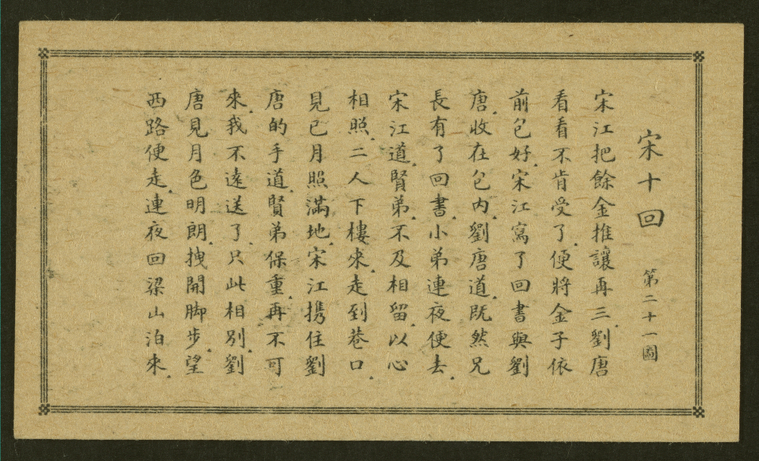 宋十回
第二十一圖
宋江把餘金推讓再三.劉唐
看看不肯受了.便將金子依
前包好.宋江寫了回書與劉
唐.收在包內.劉唐道.既然兄
長有了回書.小弟連夜便去.
宋江道.賢弟.不及相留.以心
相照.二人下樓來.走到巷口.
見已月照滿地.宋江携住劉
唐的手道.賢弟保重.再不可
來.我不遠送了.只此相別.劉
唐見月色明朗.拽開脚步.望
西路便走.連夜回梁山泊來.